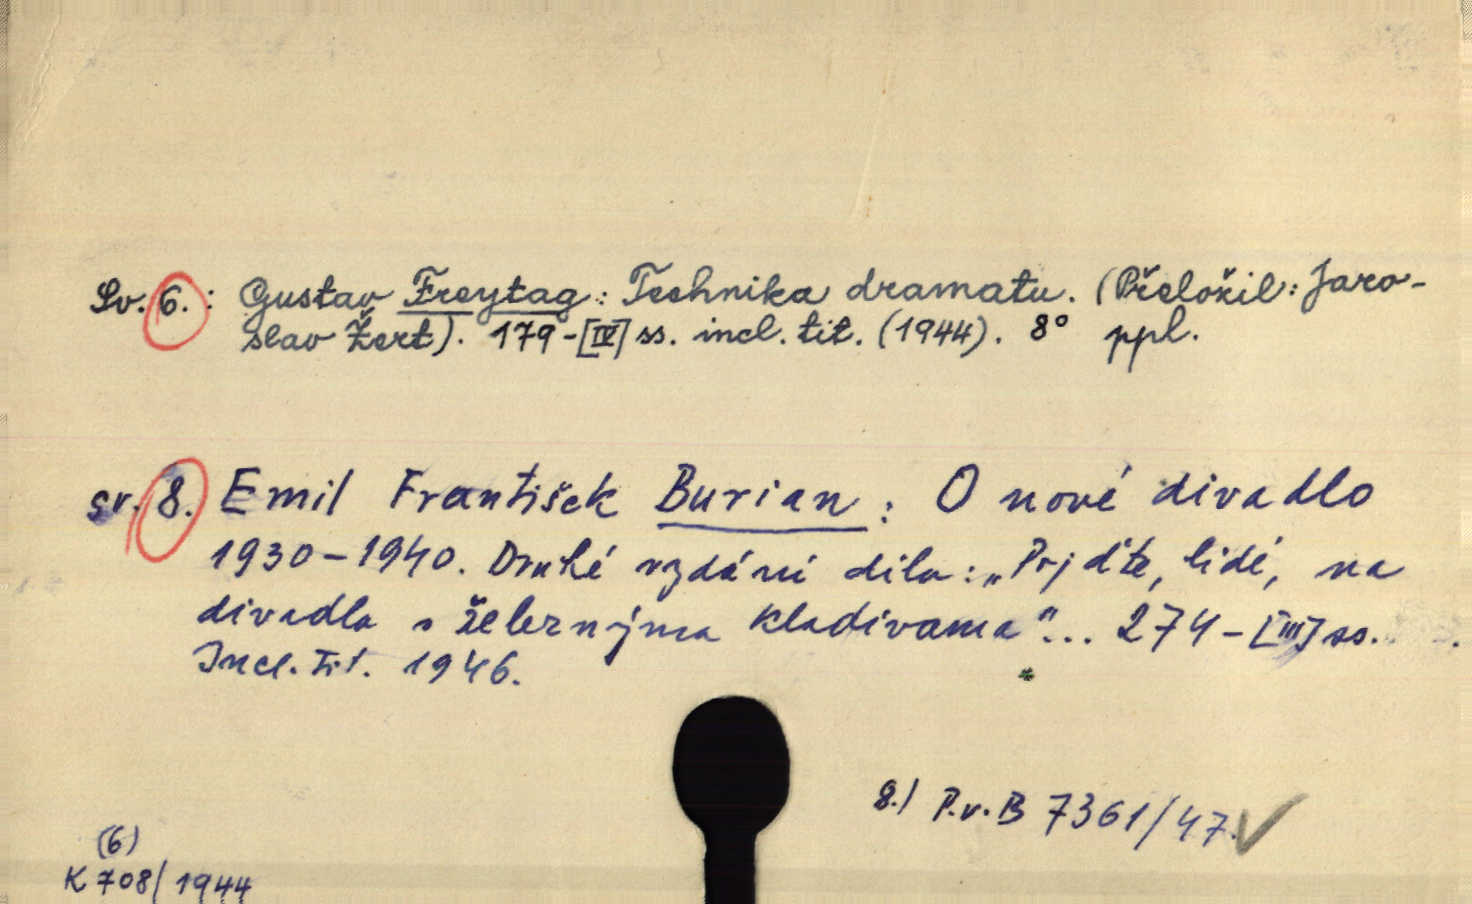 Sv. 6. : Gustav Freytag : Technika dramatu. (Přeložil : Jaro-
slav Žert). 179-[IV] ss. incl. tit. (1944). 8° ppl.
sv. 8. Emil František Burian : O nové divadlo
1930-1940. Druhé vydání díla : „Pojďte, lidé, na
divadla s železnýma kladivama"... 274-[III] ss.
Incl. tit. 1946.
8.) P.v.B 7361/47.
(6)
K 708/1944